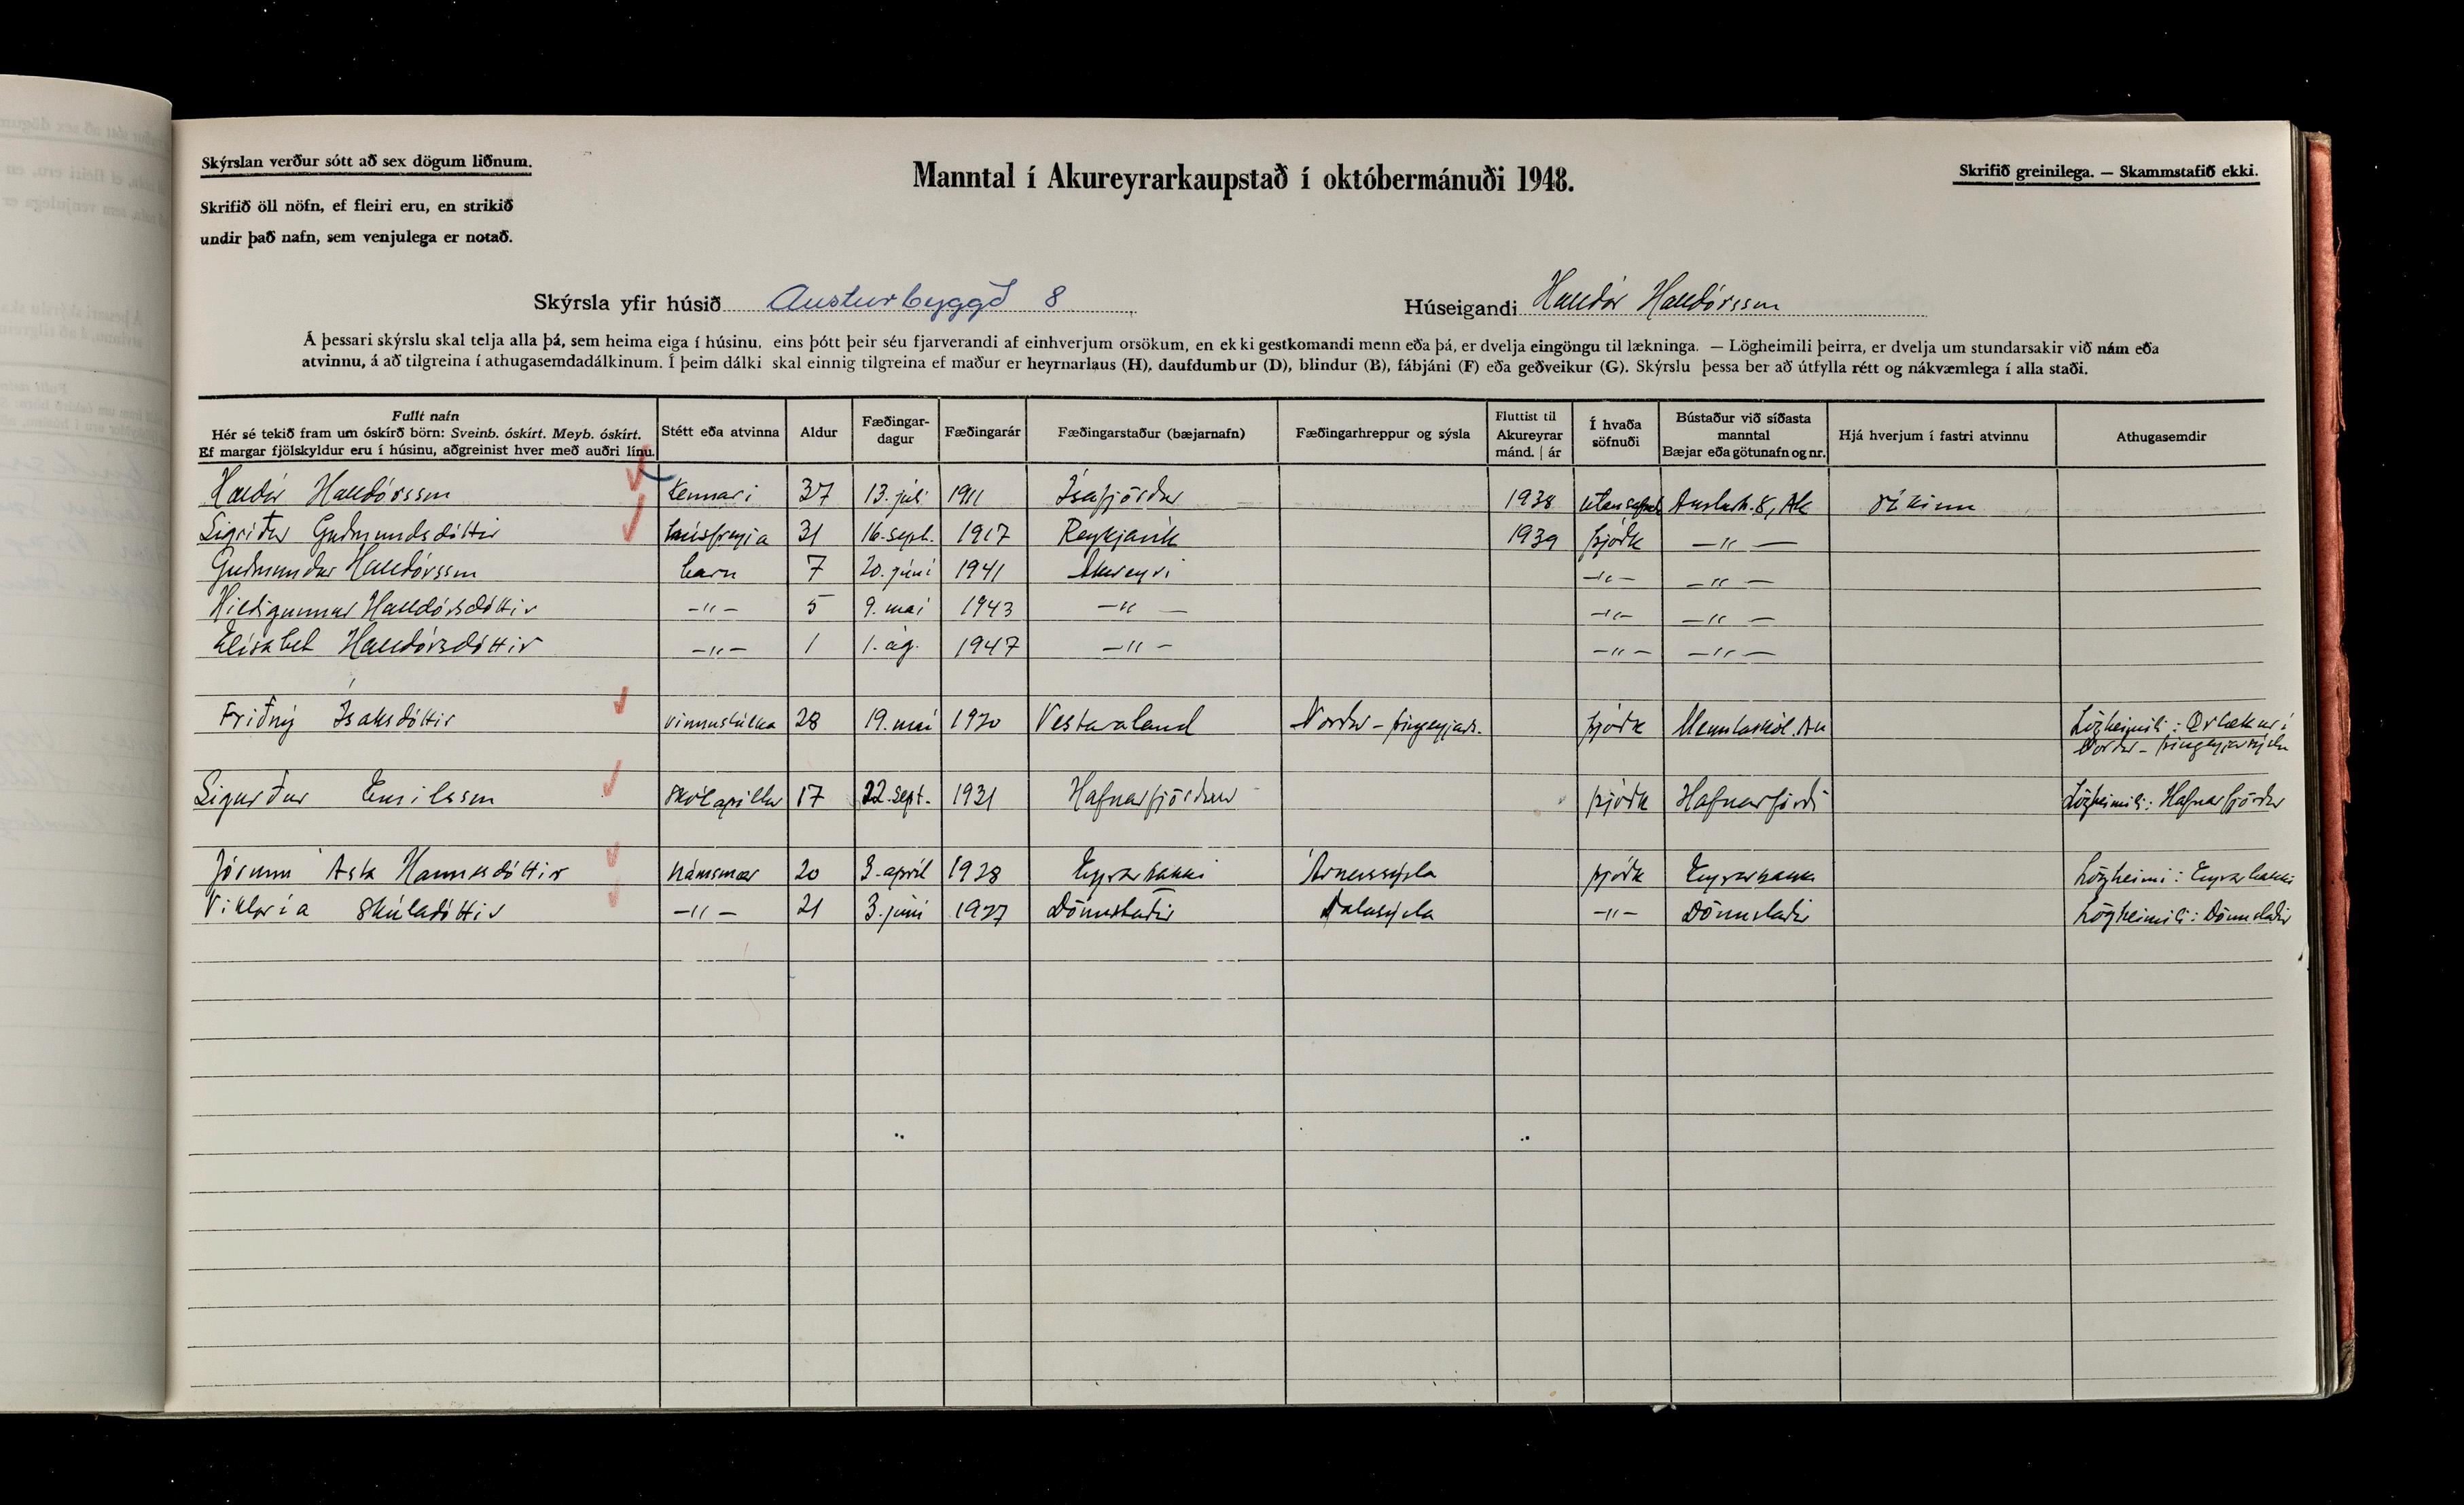 Skýrslan verður sótt að sex dögum liðnum.
Skrifið öll nöfn, ef fleiri eru, en strikið
undir það nafn, sem venjulega er notað.
Manntal í Akureyrarkaupstað í októbermánuði 1948.
Skrifið greinilega. — Skammstafið ekki.
Skýrsla yfir húsið Austurbyggð 8 Húseigandi Halldór Halldórsson
Á þessari skýrslu skal telja alla þá, sem heima eiga í húsinu, eins þótt þeir séu fjarverandi af einhverjum orsökum, en ekki gestkomandi menn eða þá, er dvelja eingöngu til lækninga. — Lögheimili þeirra, er dvelja um stundarsakir við nám eða
atvinnu, á að tilgreina í athugasemdadálkinum. Í þeim dálki skal einnig tilgreina ef maður er heyrnarlaus (H), daufdumbur (D), blindur (B), fábjáni (F) eða geðveikur (G). Skýrslu þessa ber að útfylla rétt og nákvæmlega í alla staði.
Fullt nafn
Hér sé tekið fram um óskírð börn: Sveinb. óskírt. Meyb. óskírt.
Ef margar fjölskyldur eru í húsinu, aðgreinist hver með auðri línu.
Stétt eða atvinna
Aldur
Fæðingar-
dagur
Fæðingarár
Fæðingarstaður (bæjarnafn)
Fæðingarhreppur og sýsla
Fluttist til
Akureyrar
mánd. | ár
Í hvaða
söfnuði
Bústaður við síðasta
manntal
Bæjar eða götunafn og nr.
Hjá hverjum í fastri atvinnu
Athugasemdir
Halldór Halldórsson kennari 37 13. júlí 1911 Ísafjörður 1938 utan safnað Austurb. 8, Ak ríkinu
Sigríður Guðmundsdóttir húsfreyja 31 16. sept. 1917 Reykjavík 1939 þjóðk —"—
Guðmundur Halldórsson barn 7 20. júní 1941 Akureyri —"— —"—
Hildigunnur Halldórsdóttir —"— 5 9. maí 1943 —"— —"— —"—
Elísabet Halldórsdóttir —"— 1 1. ág. 1947 —"— —"— —"—
Friðný Ísaksdóttir vinnustúlka 28 19. maí 1920 Vestaraland Norður-Þingeyjars. þjóðk Menntaskól. Ak Lögheimili: Ærlækur í
Norður-Þingeyjarsýslu
Sigurður Emilsson skólapiltur 17 22. sept. 1931 Hafnarfjörður þjóðk Hafnarfirði Lögheimili: Hafnarfjörður
Jórunn Ásta Hannesdóttir námsmær 20 3. apríl 1928 Eyrarbakki Árnessýsla þjóðk Eyrarbakki Lögheimi: Eyrarbakki
Viktoría Skúladóttir —"— 21 3. júní 1927 Dönustaðir Dalasýsla —"— Dönustaðir Lögheimili: Dönustaðir